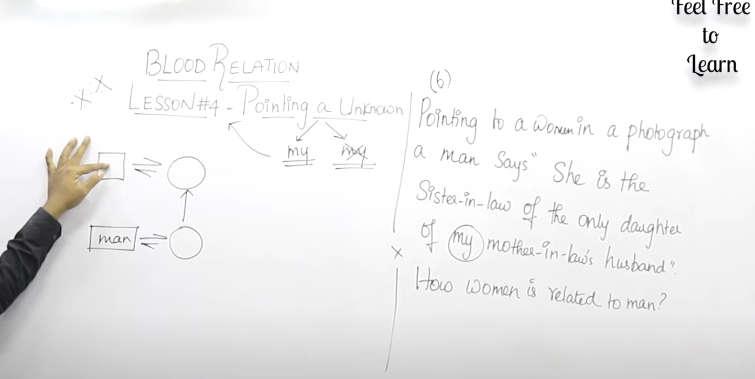 Feel Free
to
Learn
BLOOD RELATION
LESSON #4 - Pointing a Unknown
my my
man
(6)
Pointing to a women in a photograph
a man says "She is the
Sister-in-law of the only daughter
of my mother-in-law's husband".
How women is related to man?